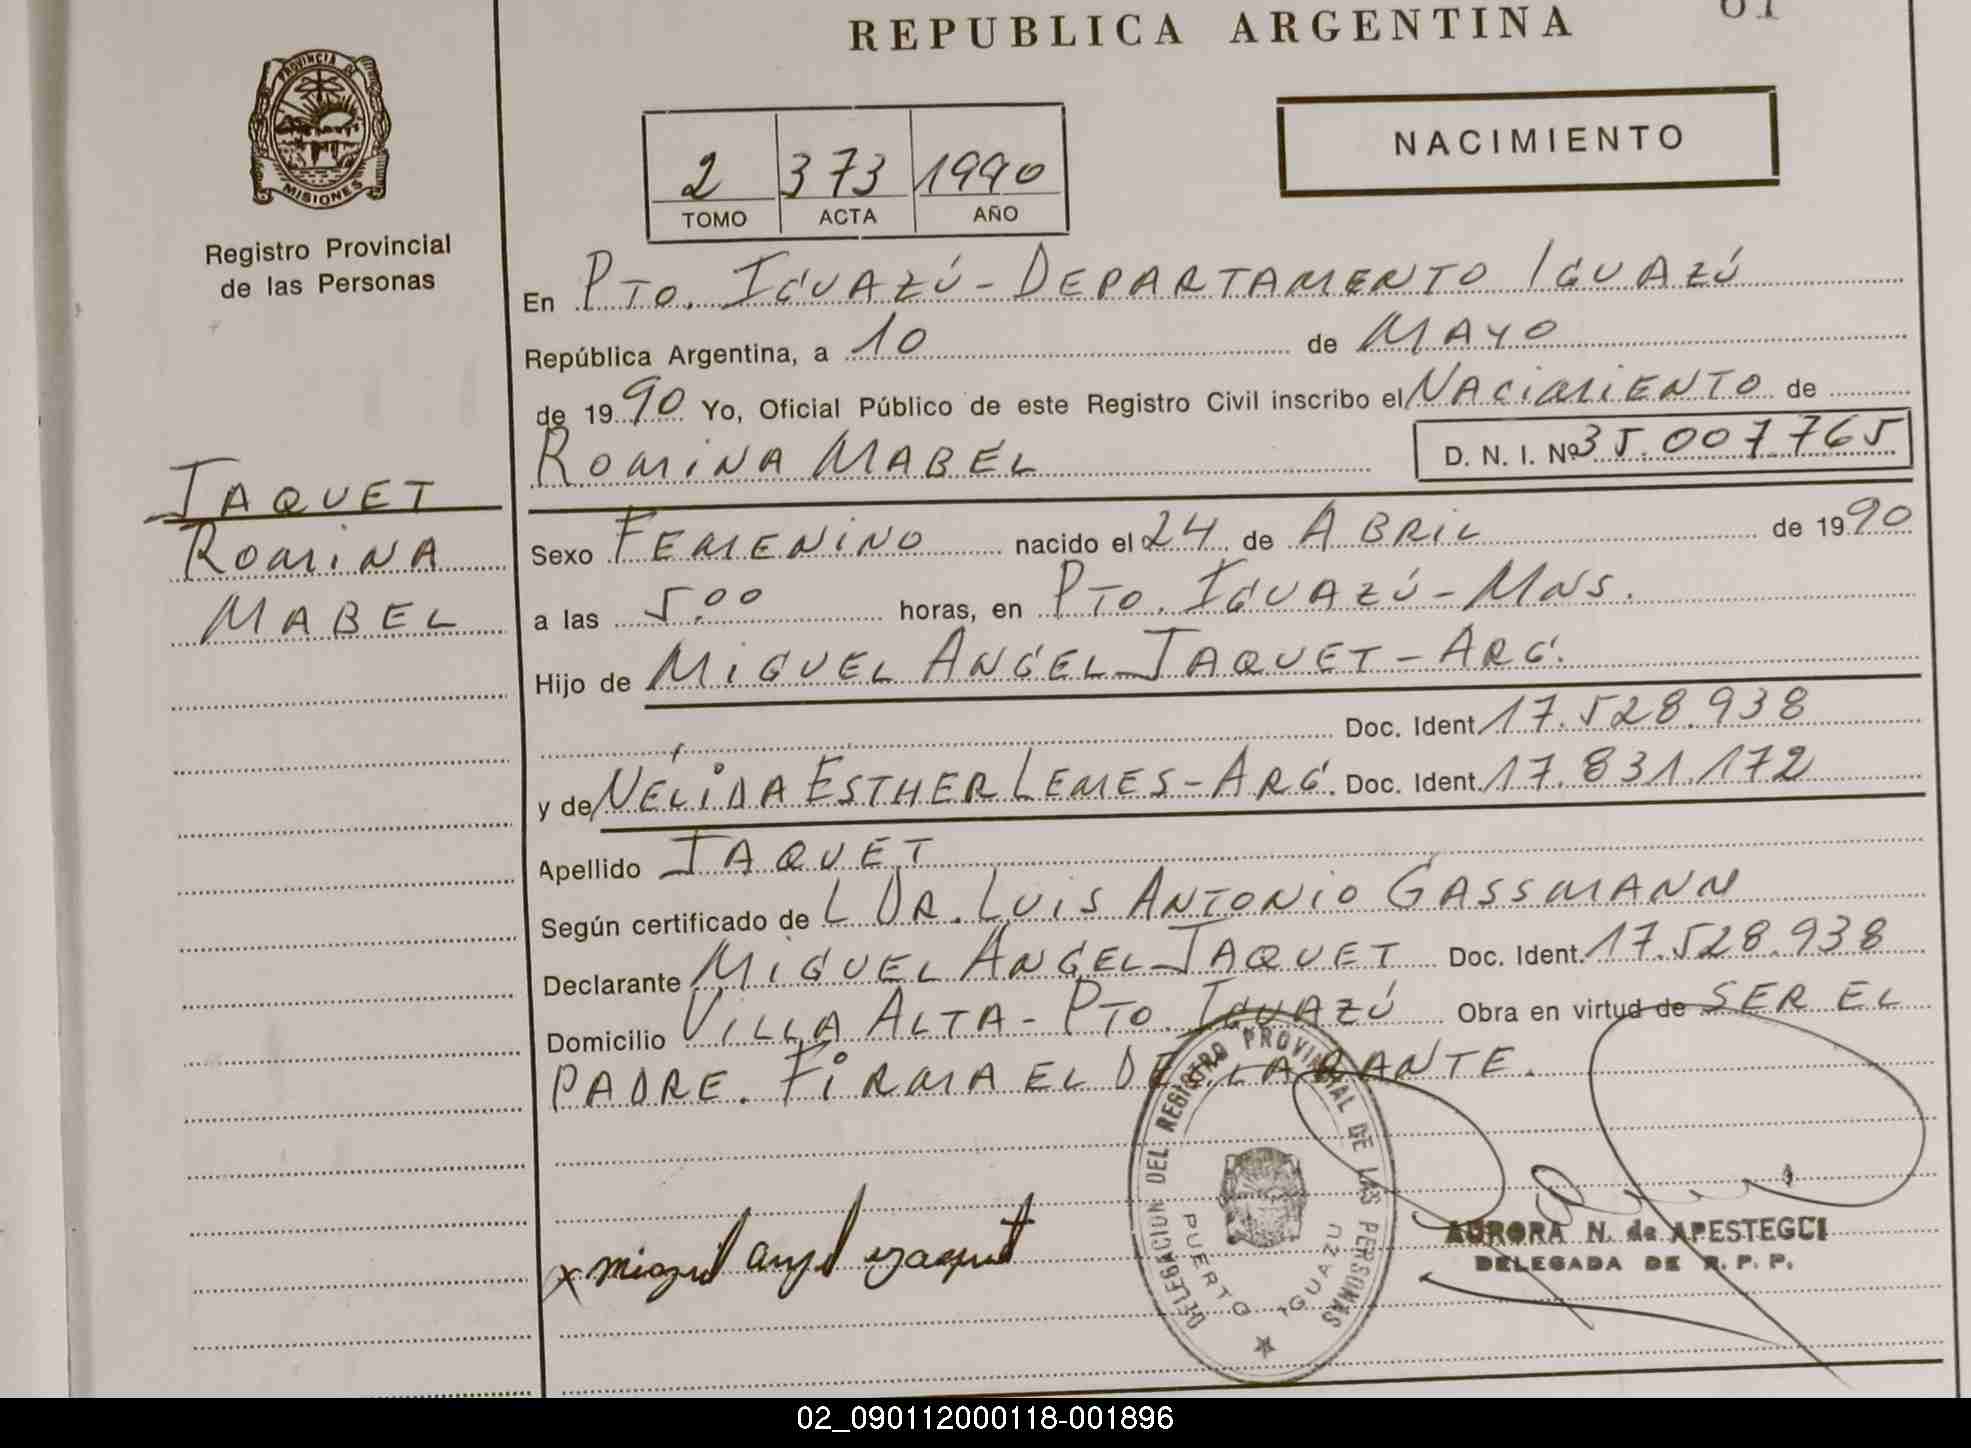 REPUBLICA ARGENTINA
PROVINCIA DE
MISIONES
Registro Provincial
de las Personas
2 373 1990
TOMO ACTA AÑO
NACIMIENTO
En PTO. IGUAZÚ - DEPARTAMENTO IGUAZÚ
República Argentina, a 10 de MAYO
de 1990 Yo, Oficial Público de este Registro Civil inscribo el NACIMIENTO de
ROMINA MABEL D. N. I. Nº 35.007.765
JAQUET
ROMINA
MABEL
Sexo FEMENINO nacido el 24 de ABRIL de 1990
a las 5:00 horas, en PTO. IGUAZÚ - MNS.
Hijo de MIGUEL ANGEL JAQUET - ARG.
Doc. Ident. 17.528.938
y de NÉLIDA ESTHER LEMES - ARG. Doc. Ident. 17.831.172
Apellido JAQUET
Según certificado de L DR. LUIS ANTONIO GASSMANN
Declarante MIGUEL ANGEL JAQUET Doc. Ident. 17.528.938
Domicilio VILLA ALTA - PTO. IGUAZÚ Obra en virtud de SER EL
PADRE. FIRMA EL DECLARANTE.
DELEGACION DEL REGISTRO PROVINCIAL DE LAS PERSONAS
PUERTO IGUAZU
x miguel angel
AURORA N. de APESTEGUI
DELEGADA DE R. P. P.
02_090112000118-001896